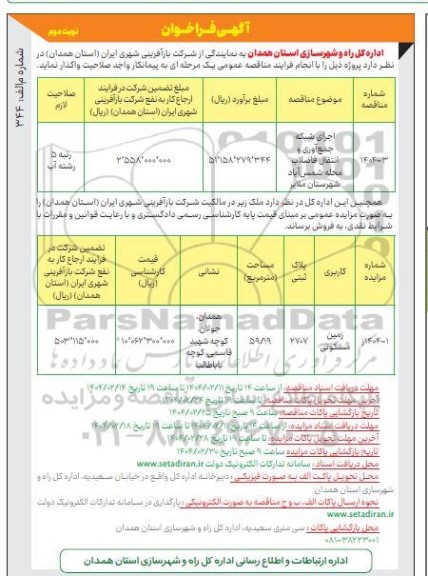 آگهی فراخوان
نوبت دوم
شماره م.الف: ۳۴۴
اداره کل راه و شهرسازی استان همدان به نمایندگی از شرکت بازآفرینی شهری ایران (استان همدان) در
نظر دارد پروژه ذیل را با انجام فرایند مناقصه عمومی یک مرحله ای به پیمانکار واجد صلاحیت واگذار نماید.
شماره مناقصه
موضوع مناقصه
مبلغ برآورد (ریال)
مبلغ تضمین شرکت در فرایند
ارجاع کار به نفع شرکت بازآفرینی
شهری ایران (استان همدان) (ریال)
صلاحیت
لازم
۱۴۰۴-۳
اجرای شبکه
جمع‌آوری و
انتقال فاضلاب
محله شمس‌آباد
شهرستان ملایر
۵۱٬۱۵۸٬۲۷۹٬۳۴۴
۲٬۵۵۸٬۰۰۰٬۰۰۰
رتبه ۵
رشته آب
همچنین این اداره کل در نظر دارد ملک زیر در مالکیت شرکت بازآفرینی شهری ایران (استان همدان) را
به صورت مزایده عمومی بر مبنای قیمت پایه کارشناسی رسمی دادگستری و با رعایت قوانین و مقررات با
شرایط نقدی، به فروش برساند.
شماره
مزایده
کاربری
پلاک
ثبتی
مساحت
(مترمربع)
نشانی
قیمت
کارشناسی
(ریال)
تضمین شرکت در
فرایند ارجاع کار به
نفع شرکت بازآفرینی
شهری ایران (استان
همدان) (ریال)
۱-۱۴۰۴ز
زمین
مسکونی
۲۷۰۷
۵۹/۱۹
همدان،
جولان،
کوچه شهید
قاسمی، کوچه
باباطالب
۱۰٬۰۶۲٬۳۰۰٬۰۰۰
۵۰۳٬۱۱۵٬۰۰۰
ParsNamadData
مهلت دریافت اسناد مناقصه: از ساعت ۱۴ تاریخ ۱۴۰۴/۰۲/۱۱ تا ساعت ۱۹ تاریخ ۱۴۰۴/۰۲/۱۴
آخرین مهلت تحویل پاکات مناقصه: تا ساعت ۱۹ تاریخ ۱۴۰۴/۰۲/۲۴
تاریخ بازگشایی پاکات مناقصه: ساعت ۹ صبح تاریخ ۱۴۰۴/۰۲/۲۵
مهلت دریافت اسناد مزایده: از ساعت ۱۴ تاریخ ۱۴۰۴/۰۲/۱۱ تا ساعت ۱۹ تاریخ ۱۴۰۴/۰۲/۱۸
آخرین مهلت تحویل پاکات مزایده: تا ساعت ۱۹ تاریخ ۱۴۰۴/۰۲/۲۸
تاریخ بازگشایی پاکات مزایده: ساعت ۹ صبح تاریخ ۱۴۰۴/۰۲/۳۰
محل دریافت اسناد: سامانه تدارکات الکترونیک دولت www.setadiran.ir
محل تحویل پاکت الف به صورت فیزیکی: دبیرخانه اداره کل واقع در خیابان سعیدیه، اداره کل راه و
شهرسازی استان همدان
نحوه ارسال پاکات الف، ب و ج مناقصه به صورت الکترونیکی: بارگذاری در سامانه تدارکات الکترونیک دولت
www.setadiran.ir
محل بازگشایی پاکات: سی متری سعیدیه، اداره کل راه و شهرسازی استان همدان
۰۸۱-۳۸۲۲۳۰۰۱
اداره ارتباطات و اطلاع رسانی اداره کل راه و شهرسازی استان همدان